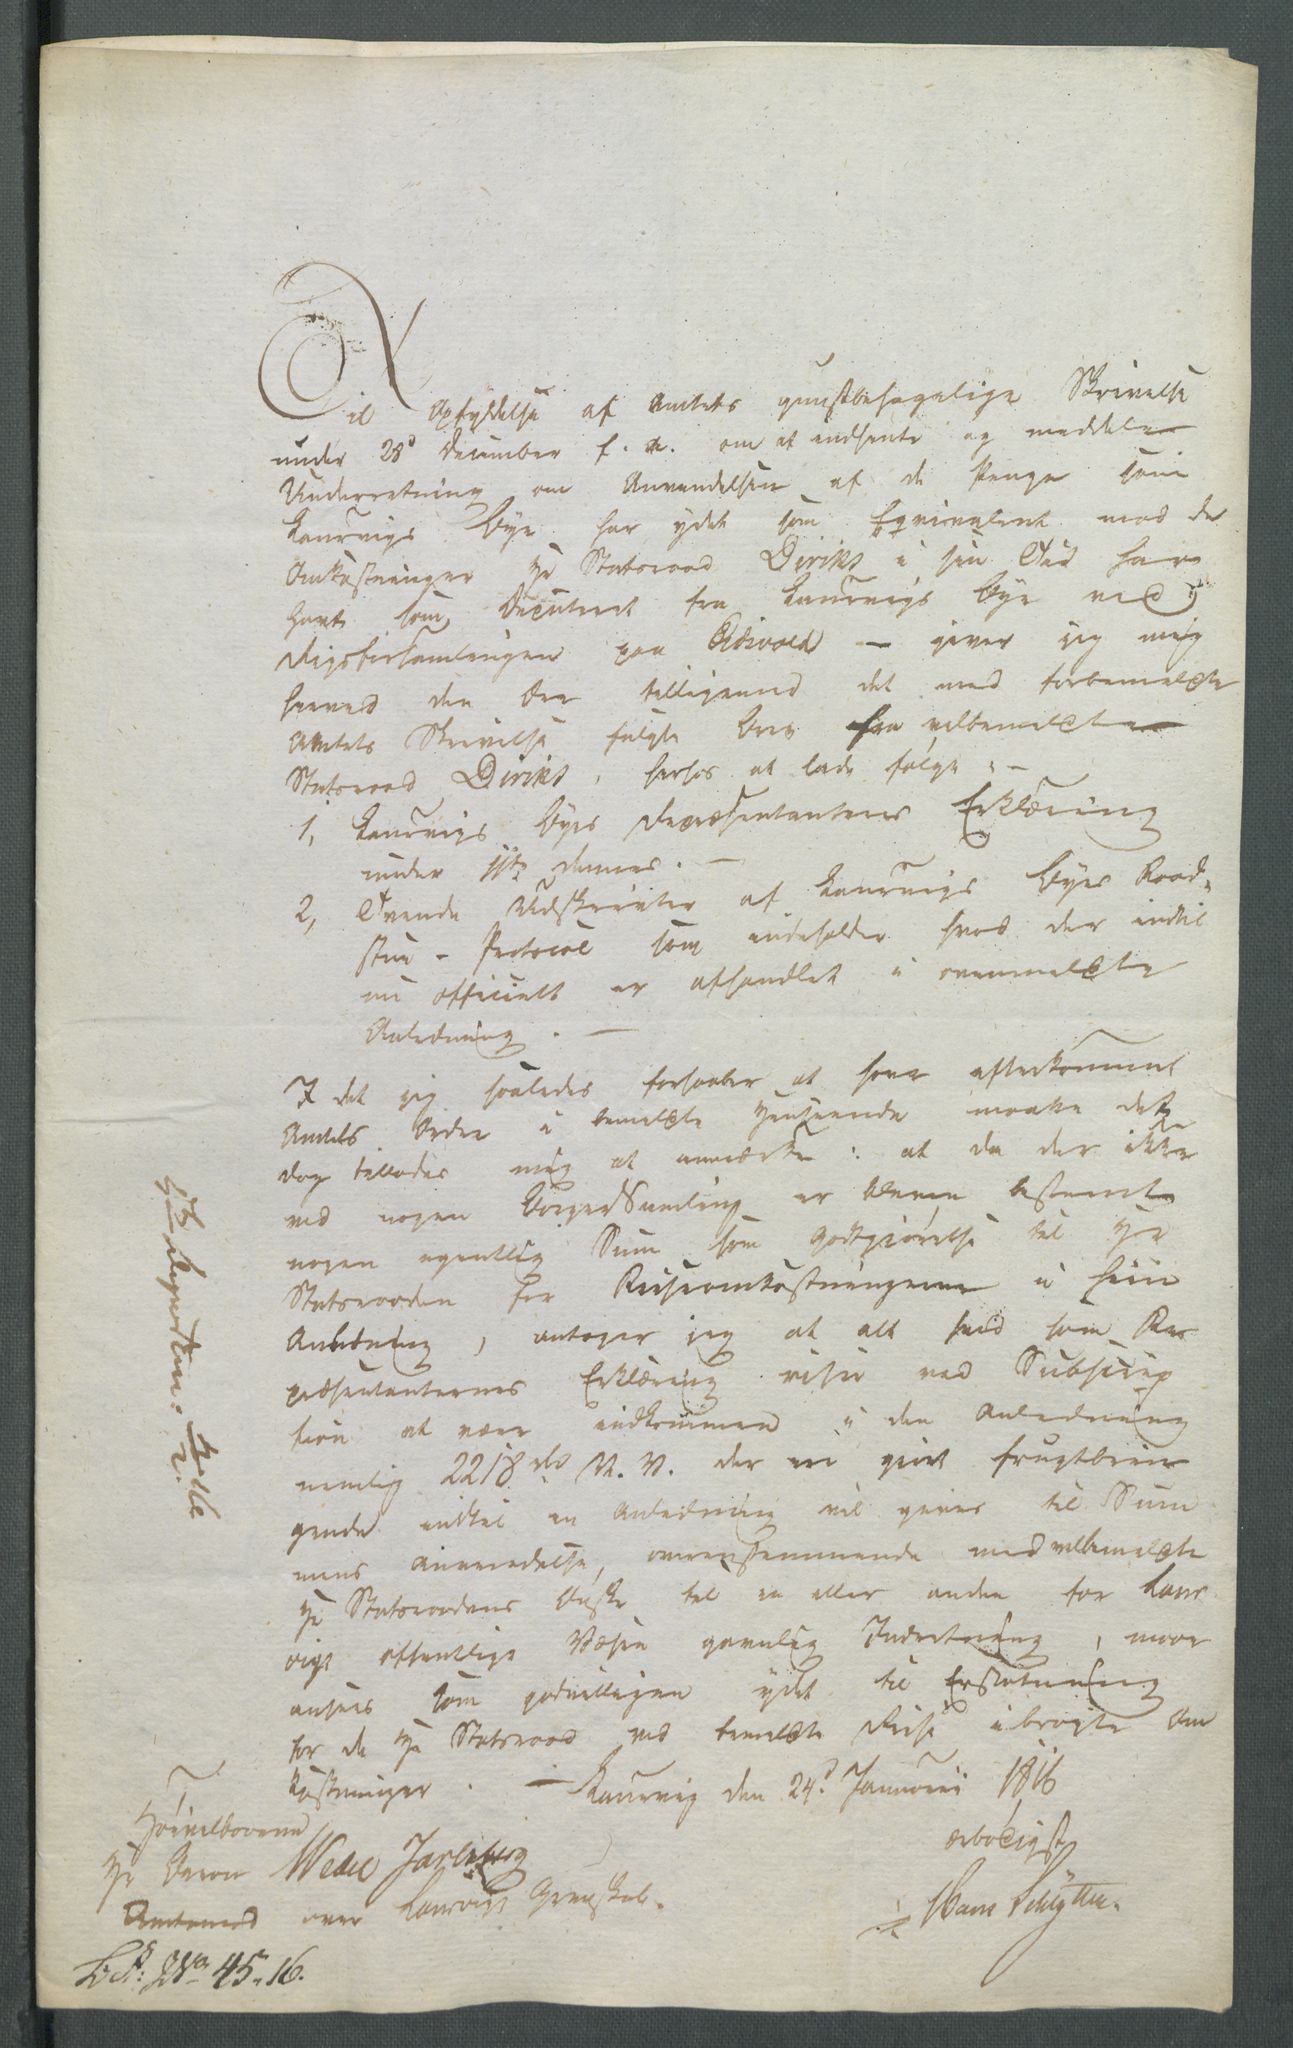 Til Opfyldelse af Amtets gunstbehagelige Skrivelse
under 28d December f. A. om at indhente og meddele
Underretning om Anvendelsen af de Penge som
Laurvigs Bye har ydet som Eqvivalent mod de
Omkostninger Hr Statsraad Diriks i sin Tid har
havt som Deputeret fra Laurvigs Bye ved
Rigsforsamlingen paa Eidsvold — giver jeg mig
herved den Ære tilligemed det med forbemeldte
Amtets Skrivelse fulgte Brev fra velbemeldte
Statsraad Diriks, herhos at lade følge: —
1, Laurvigs Byes Repræsentanters Erklæring
under 11te dennes. —
2, Tvende Udskrivter af Laurvigs Byes Raad-
stue-Protocol som indeholder hvad der indtil
nu officielt er afhandlet i ovenmeldte
Anledning. —
I det jeg saaledes forhaaber at have efterkommet
Amtets Ordre i bemeldte Henseende maatte det
dog tillades mig at anmærke: at da der ikke
ved nogen Borger Samling er bleven bestemt
nogen egentlig Sum som Godtgiørelse til Hr
Statsraaden for Reiseomkostningerne i hiin
Anledning, antager jeg at alt hvad som Re
præsentanternes Erklæring viser ved Subscrip
tion at være indkommen i den Anledning
nemlig 2218 rd N. V. der er giort frugtbrin
gende indtil en Anledning vil gives til Sum
mens Anvendelse, overensstemmende med velbemeldte
Hr Statsraadens Ønske til en eller anden for Laur
vigs offentlige Væsen gavnlig Indretning, maae
ansees som godvilligen ydet til Erstatning
for de Hr Statsraad ved bemeldte Reise paabragte Om
kostninger. — Laurvig den 24d Januarii 1816
ærbødigst
Hans Schytter.
Høivelbaarne
Hr Baron Wedel Jarlsberg
Amtmand over Laurvigs Grevskab.
45. 16.